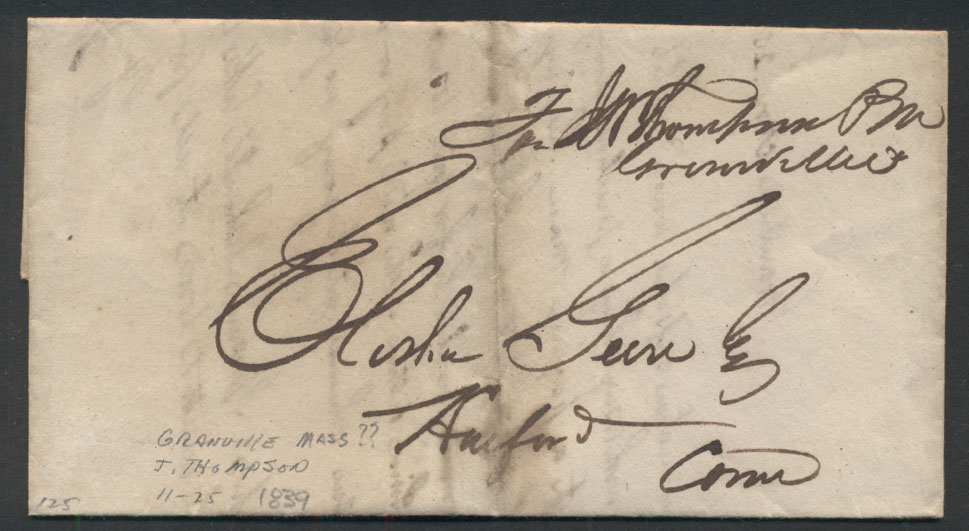 Free J W Thompson PM
Elisha Geere Esq
Hartford
Conn
GRANVILLE MASS ??
J. THOMPSON
11-25 1839
125